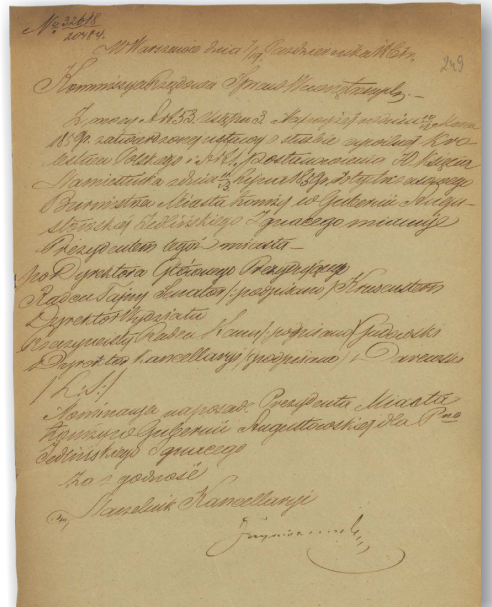 No 32618
20484
249
W Warszawie dnia 7/19 Października 186
Kommissya Rządowa Spraw Wewnętrznych
Z mocy Art. 53 Ukazu Najwyższego w dniu Marca
1859 r. zatwierdzonej ustawy o służbie cywilnej Kró
lestwa Polskiego i Art. 1 postanowienia JO. Xięcia
Namiestnika z dnia 1859 r. dotychczasowego
Burmistrza Miasta Łomży w Gubernii Augu
stowskiej Jedlińskiego Ignacego mianuje
Prezydentem tegoż miasta
po Dyrektora Głównego Prezydującego
Radca Tajny Senator /:podpisano:/ Kruzenstern
Dyrektor Wydziału
Rzeczywisty Radca Stanu /:podpisano/
Dyrektor Kancellaryi /podpisano/
/L.S./
Nominacya na posad. Prezydenta Miasta
Łomży w Gubernii Augustowskiej dla Pna
Jedlińskiego Ignacego
Za zgodność
Naczelnik Kancellaryi